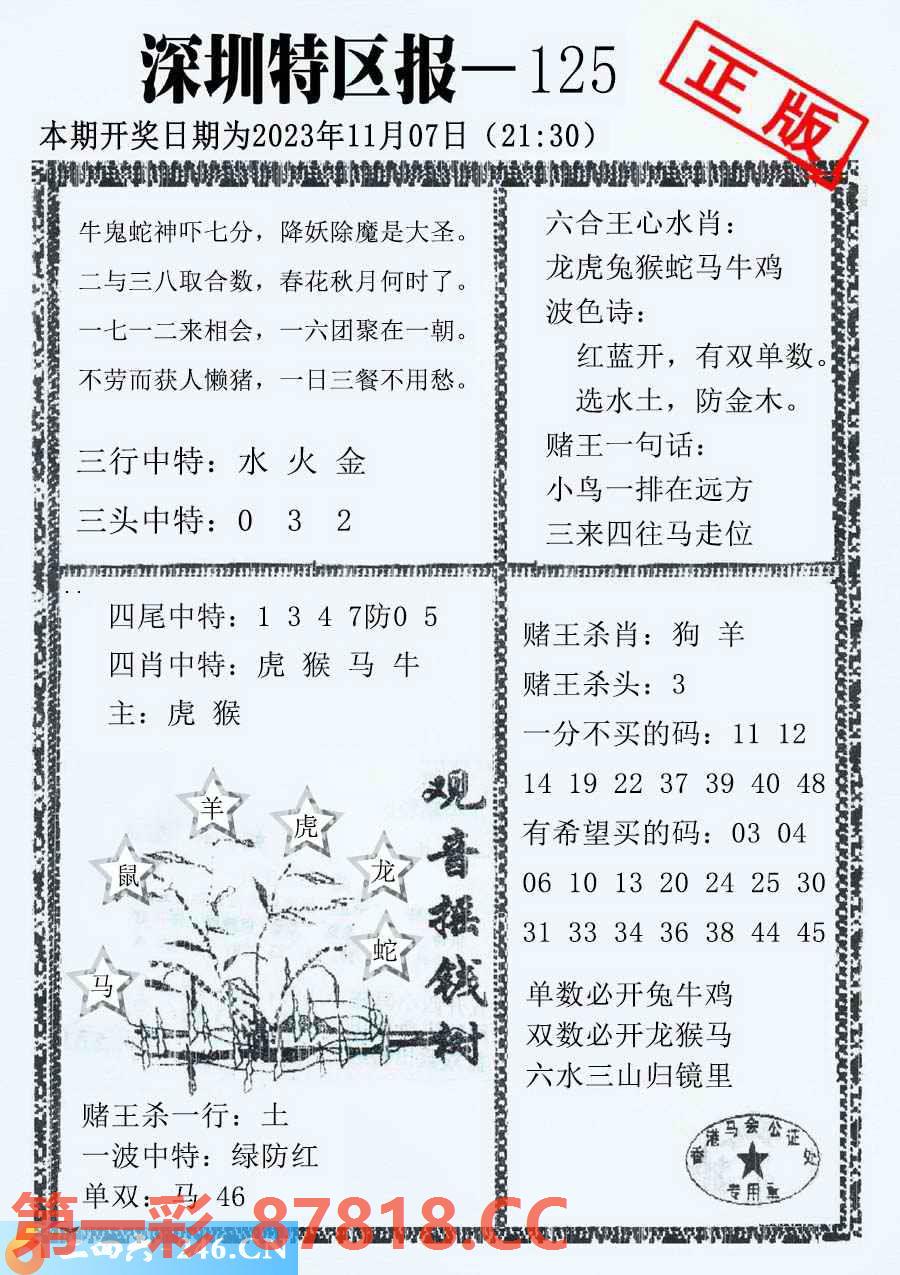 深圳特区报—125
正版
本期开奖日期为2023年11月07日（21:30）
牛鬼蛇神吓七分，降妖除魔是大圣。
二与三八取合数，春花秋月何时了。
一七一二来相会，一六团聚在一朝。
不劳而获人懒猪，一日三餐不用愁。
三行中特：水 火 金
三头中特：0 3 2
六合王心水肖：
龙虎兔猴蛇马牛鸡
波色诗：
红蓝开，有双单数。
选水土，防金木。
赌王一句话：
小鸟一排在远方
三来四往马走位
四尾中特：1 3 4 7防0 5
四肖中特：虎 猴 马 牛
主：虎 猴
羊
虎
鼠
龙
蛇
马
观音摇钱树
赌王杀一行：土
一波中特：绿防红
单双：马 46
赌王杀肖：狗 羊
赌王杀头：3
一分不买的码：11 12
14 19 22 37 39 40 48
有希望买的码：03 04
06 10 13 20 24 25 30
31 33 34 36 38 44 45
单数必开兔牛鸡
双数必开龙猴马
六水三山归镜里
香港马会公证处
专用章
第一彩 87818.CC
246.CN